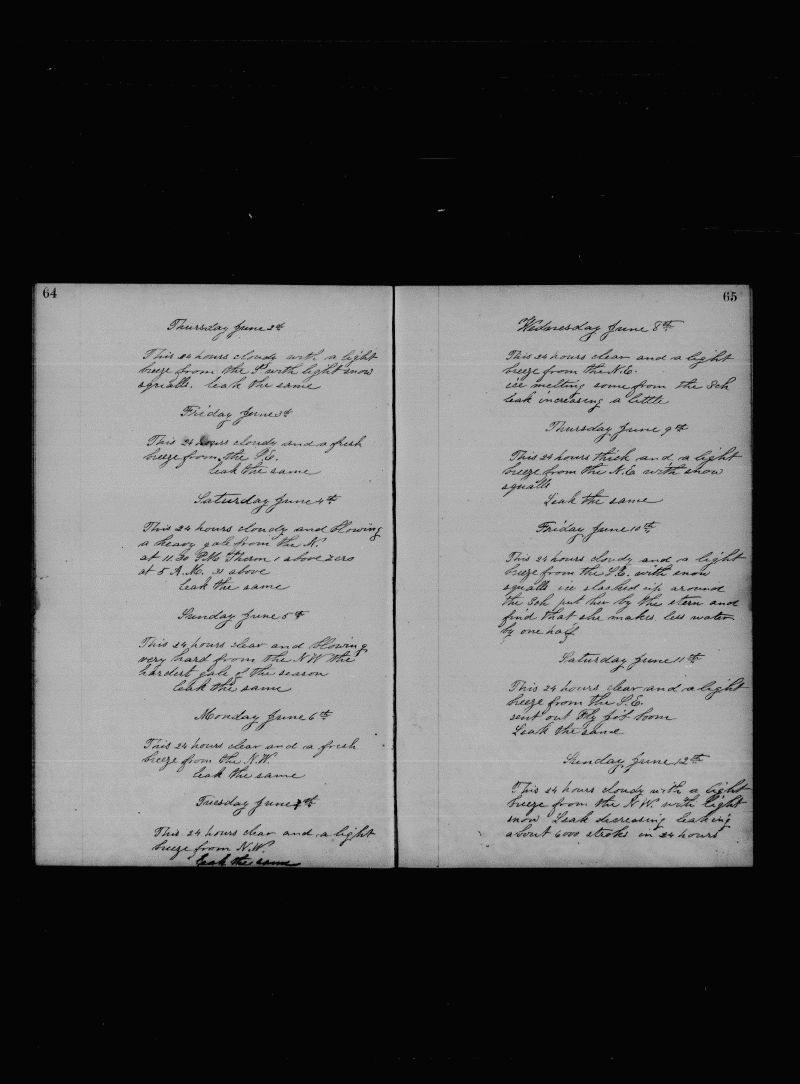 64
Thursday June 2nd
This 24 hours cloudy with a light
breeze from the S. with light snow
squalls. leak the same
Friday June 3d
This 24 hours cloudy and a fresh
breeze from the S.E.
leak the same
Saturday June 4th
This 24 hours cloudy and blowing
a heavy gale from the N.
at 11.30 PM Therm 1 above zero
at 5 A.M. 31 above
leak the same
Sunday June 5th
This 24 hours clear and blowing
very hard from the NW the
hardest gale of the season
leak the same
Monday June 6th
This 24 hours clear and a fresh
breeze from the N.W.
leak the same
Tuesday June 7th
This 24 hours clear and a light
breeze from N.W.
leak the same
65
Wednesday June 8th
This 24 hours clear and a light
breeze from the N.E.
ice melting some from the Sch
leak increasing a little
Thursday June 9th
This 24 hours thick and a light
breeze from the N.E. with snow
squalls
Leak the same
Friday June 10th
This 24 hours cloudy and a light
breeze from the S.E. with snow
squalls ice slacked up around
the Sch put her by the stern and
find that she makes less water
by one half
Saturday June 11th
This 24 hours clear and a light
breeze from the S.E.
sent out Fly jib boom
Leak the same
Sunday June 12th
This 24 hours cloudy with a light
breeze from the N.W. with light
snow Leak decreasing leaking
about 6000 strokes in 24 hours